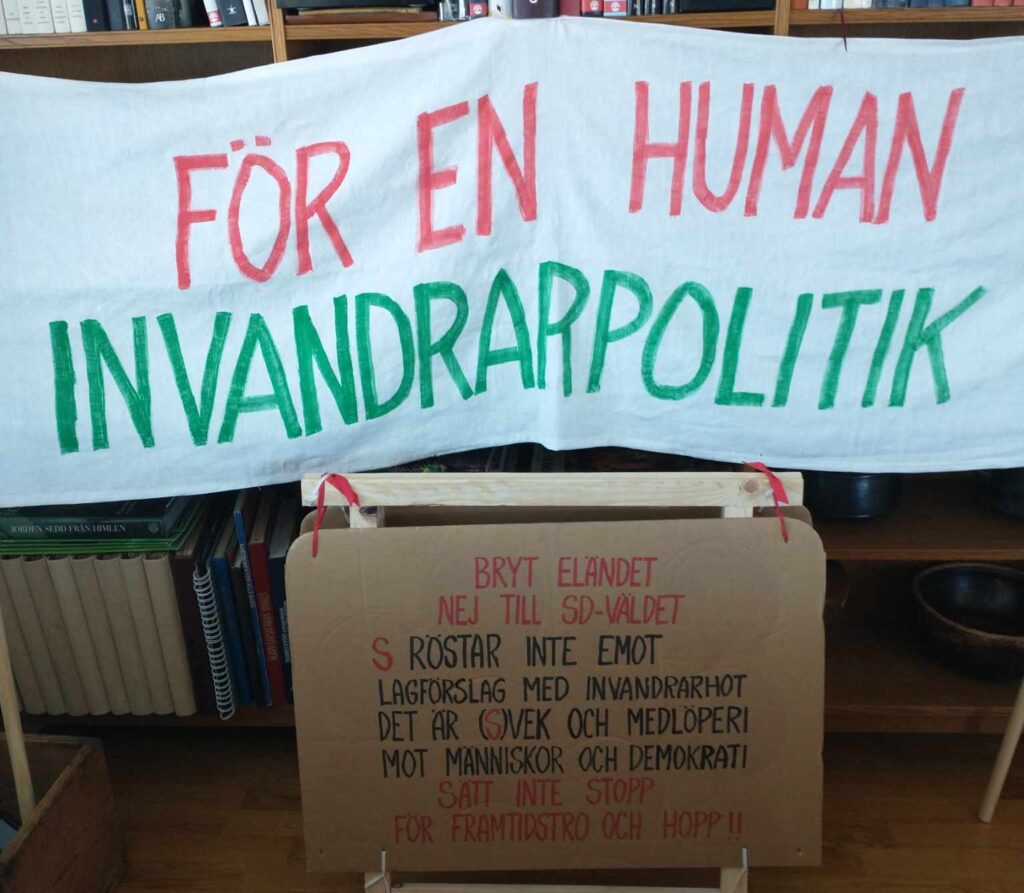 FÖR EN HUMAN
INVANDRARPOLITIK
JORDEN SEDD FRÅN HIMLEN
BRYT ELÄNDET
NEJ TILL SD-VÄLDET
S RÖSTAR INTE EMOT
LAGFÖRSLAG MED INVANDRARHOT
DET ÄR (S)VEK OCH MEDLÖPERI
MOT MÄNNISKOR OCH DEMOKRATI
SÄTT INTE STOPP
FÖR FRAMTIDSTRO OCH HOPP !!